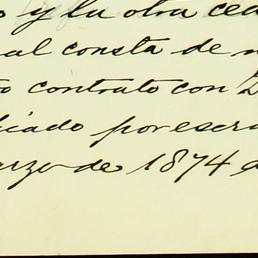 y la otra ced
al consta de
contrato con
icado por escri
arzo de 1874